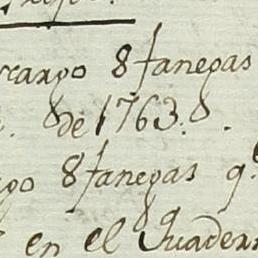 cargo 8 fanegas
de 1763.
go 8 fanegas q.e
en el Quadern